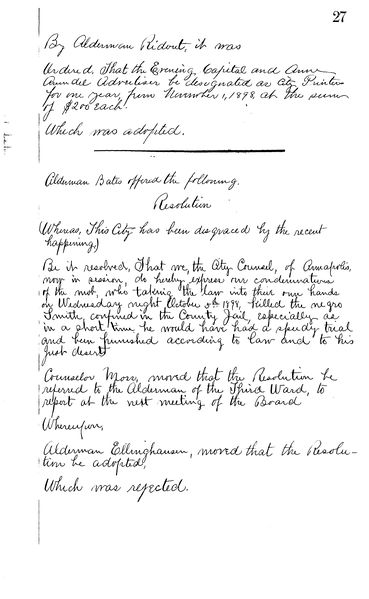 27
By Alderman Ridout, it was
Ordered, That the Evening Capital and Anne
Arundel Advertiser be designated as City Printers
for one year, from November 1, 1898, at the sum
of $200 each.
Which was adopted.
Alderman Bates offered the following.
Resolution
(Whereas, This City has been disgraced by the recent
happening,)
Be it resolved, That we, the City Counsel, of Annapolis,
now in session, do hereby express our condemnations
of the mob, who taking the law into their own hands
on Wednesday night October 5th 1898, killed the negro
Smith, confined in the County Jail, especially as
in a short time he would have had a speedy trial
and been punished according to law and to his
just desert
Counselor Moss, moved that the Resolution be
referred to the Alderman of the Third Ward, to
report at the next meeting of the Board
Whereupon,
Alderman Ellinghausen, moved that the Resolu-
tion be adopted,
Which was rejected.